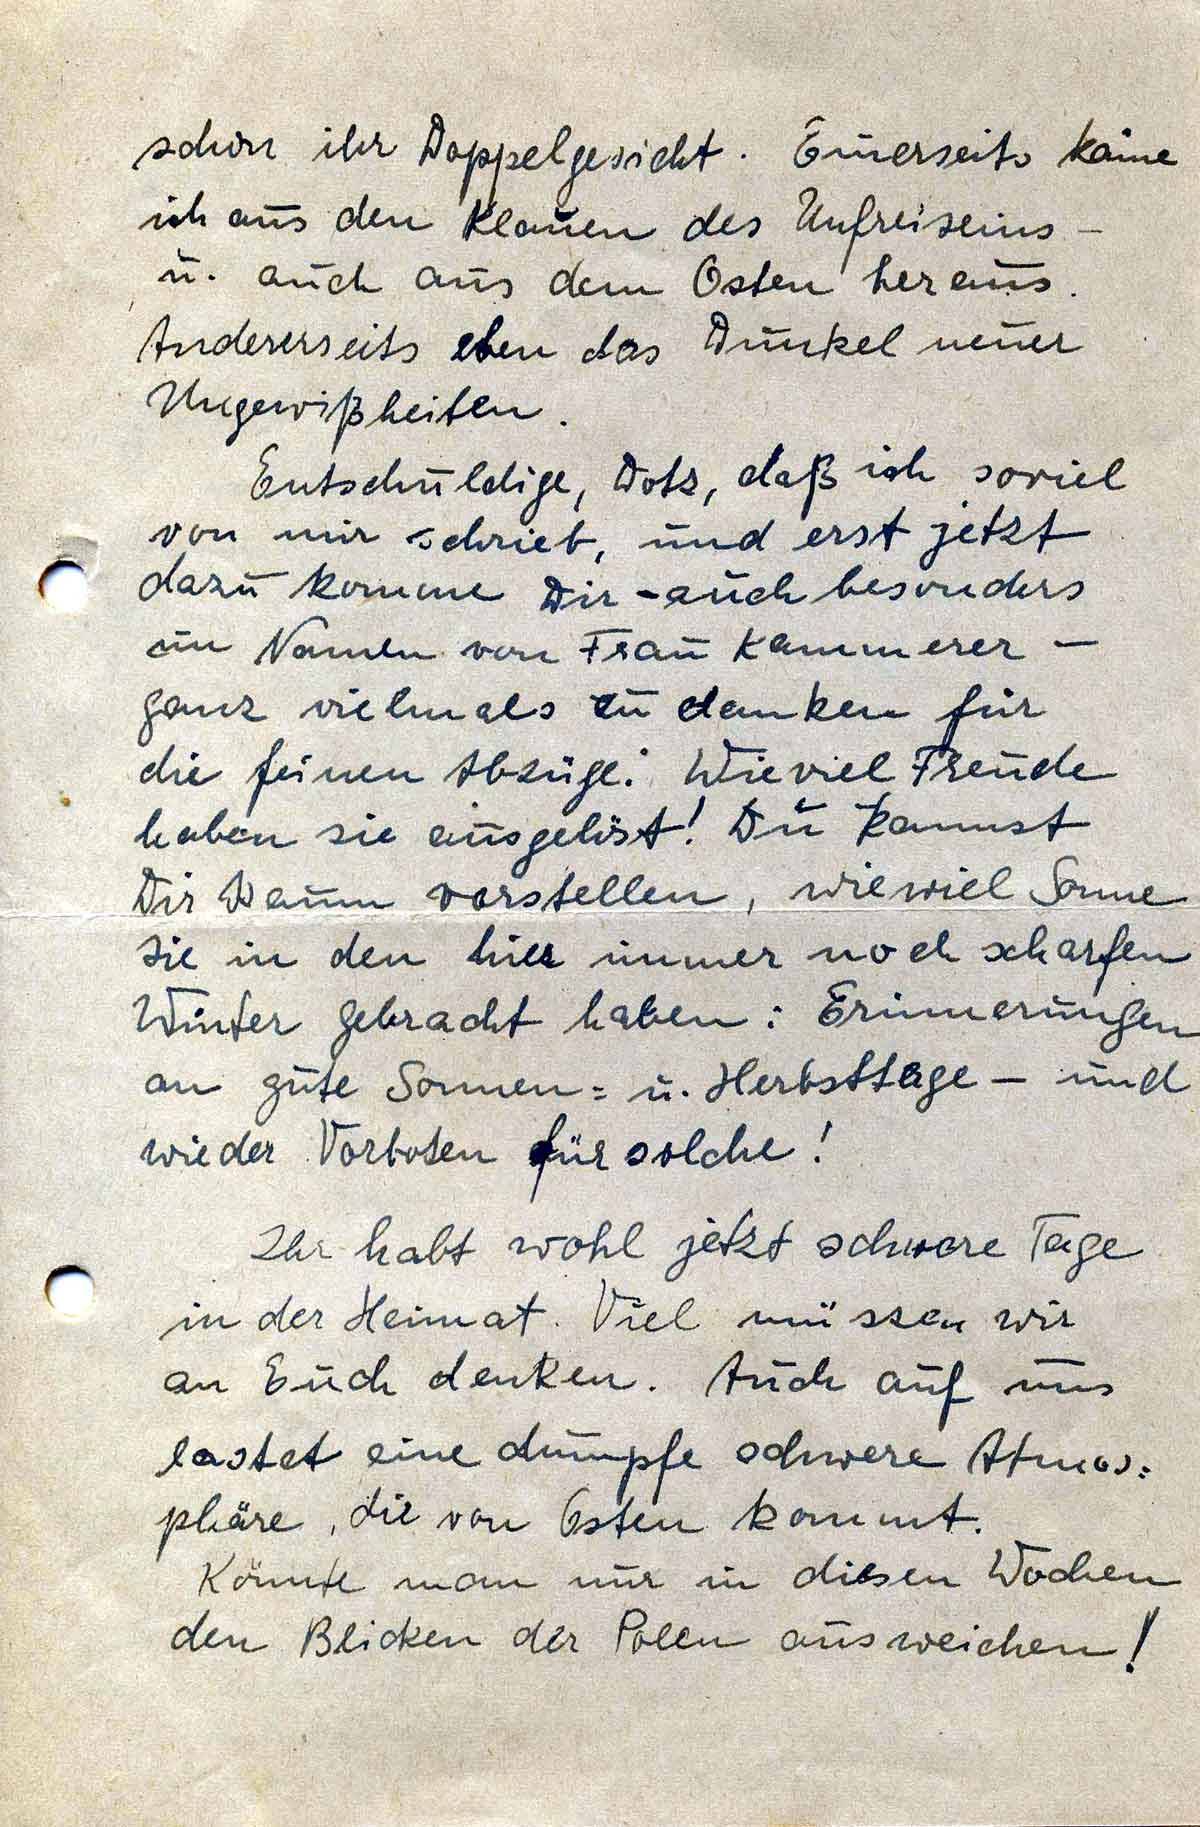 schon ihr Doppelgesicht. Einerseits käme
ich aus den Klauen des Unfreiseins –
u. auch aus dem Osten heraus.
Andererseits eben das Dunkel neuer
Ungewißheiten.
Entschuldige, Dotz, daß ich soviel
von mir schrieb, und erst jetzt
dazu komme Dir – auch besonders
im Namen von Frau Kammerer –
ganz vielmals zu danken für
die feinen Abzüge! Wieviel Freude
haben sie ausgelöst! Du kannst
Dir kaum vorstellen, wieviel Sonne
sie in den hier immer noch scharfen
Winter gebracht haben: Erinnerungen
an gute Sonnen= u. Herbsttage – und
wieder Vorboten für solche!
Ihr habt wohl jetzt schwere Tage
in der Heimat. Viel müssen wir
an Euch denken. Auch auf uns
lastet eine dumpfe schwere Atmos=
phäre, die von Osten kommt.
Könnte man nur in diesen Wochen
den Blicken der Polen ausweichen!